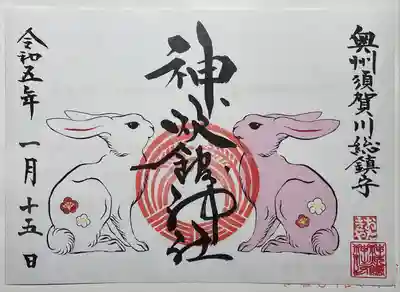 奥州須賀川総鎮守
神炊館神社
令和五年 一月 十五 日